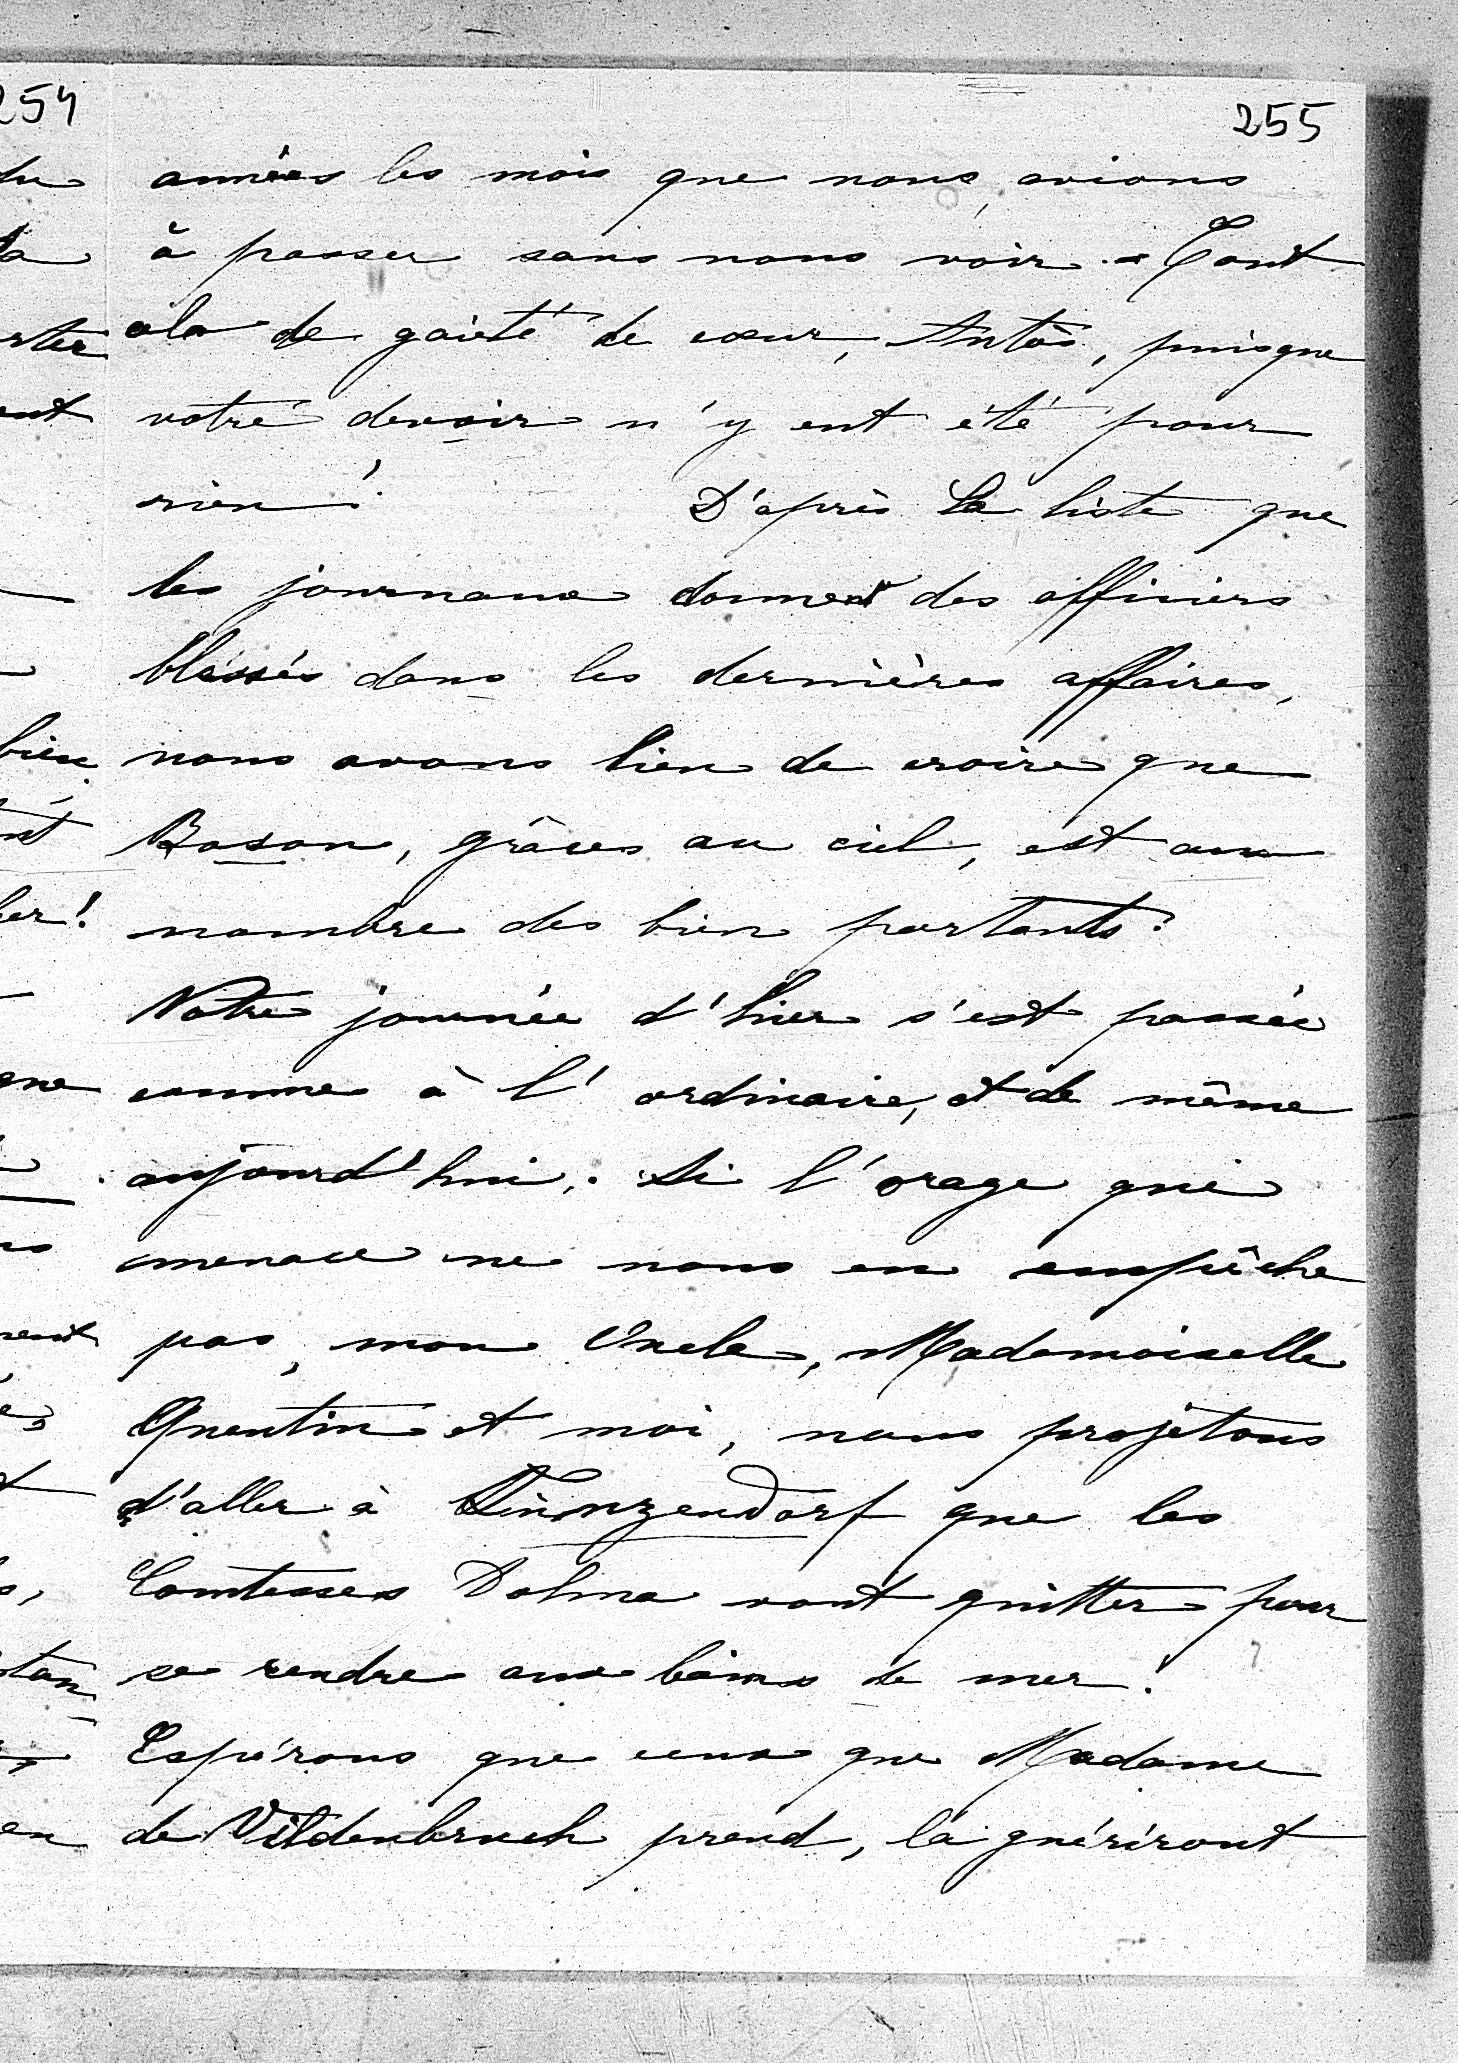 254
255
années les mois que nous avions
à passer sans nous voir. Tout
cela de gaieté de coeur, Antos, puisque
votre devoir n'y eut été pour
rien!
D'après la liste que
les journaux donnent des officiers
bléssés dans les dernières affaires,
nous avons lieu de croire que
Boson, grâces au ciel, est au
nombre des bien portants.
Notre journée d'hier s'est passée
comme à l'ordinaire, et de même
aujourd'hui. Si l'orage qui
menace ne nous en empêche
pas, mon Oncle, Mademoiselle
Quentin et moi, nous projetons
d'aller à que les
Comtesses Dohna vont quitter pour
se rendre aux bains de mer!
Espérons que ceux que Madame
de Vildenbruch prend, la guériront